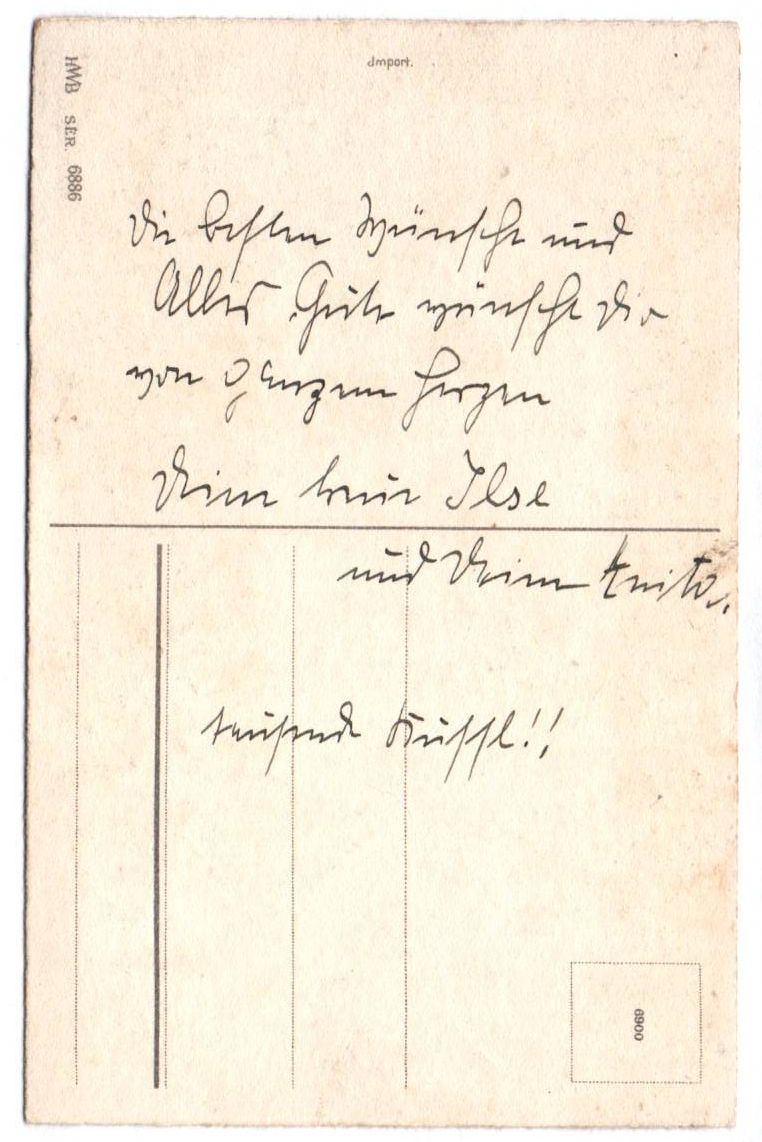 Import.
HWB SER. 6886
Die besten Wünsche und
Alles Gute wünscht Dir
von ganzem Herzen
Deine treue Ilse
und Deine
tausend Bussl!!
6900